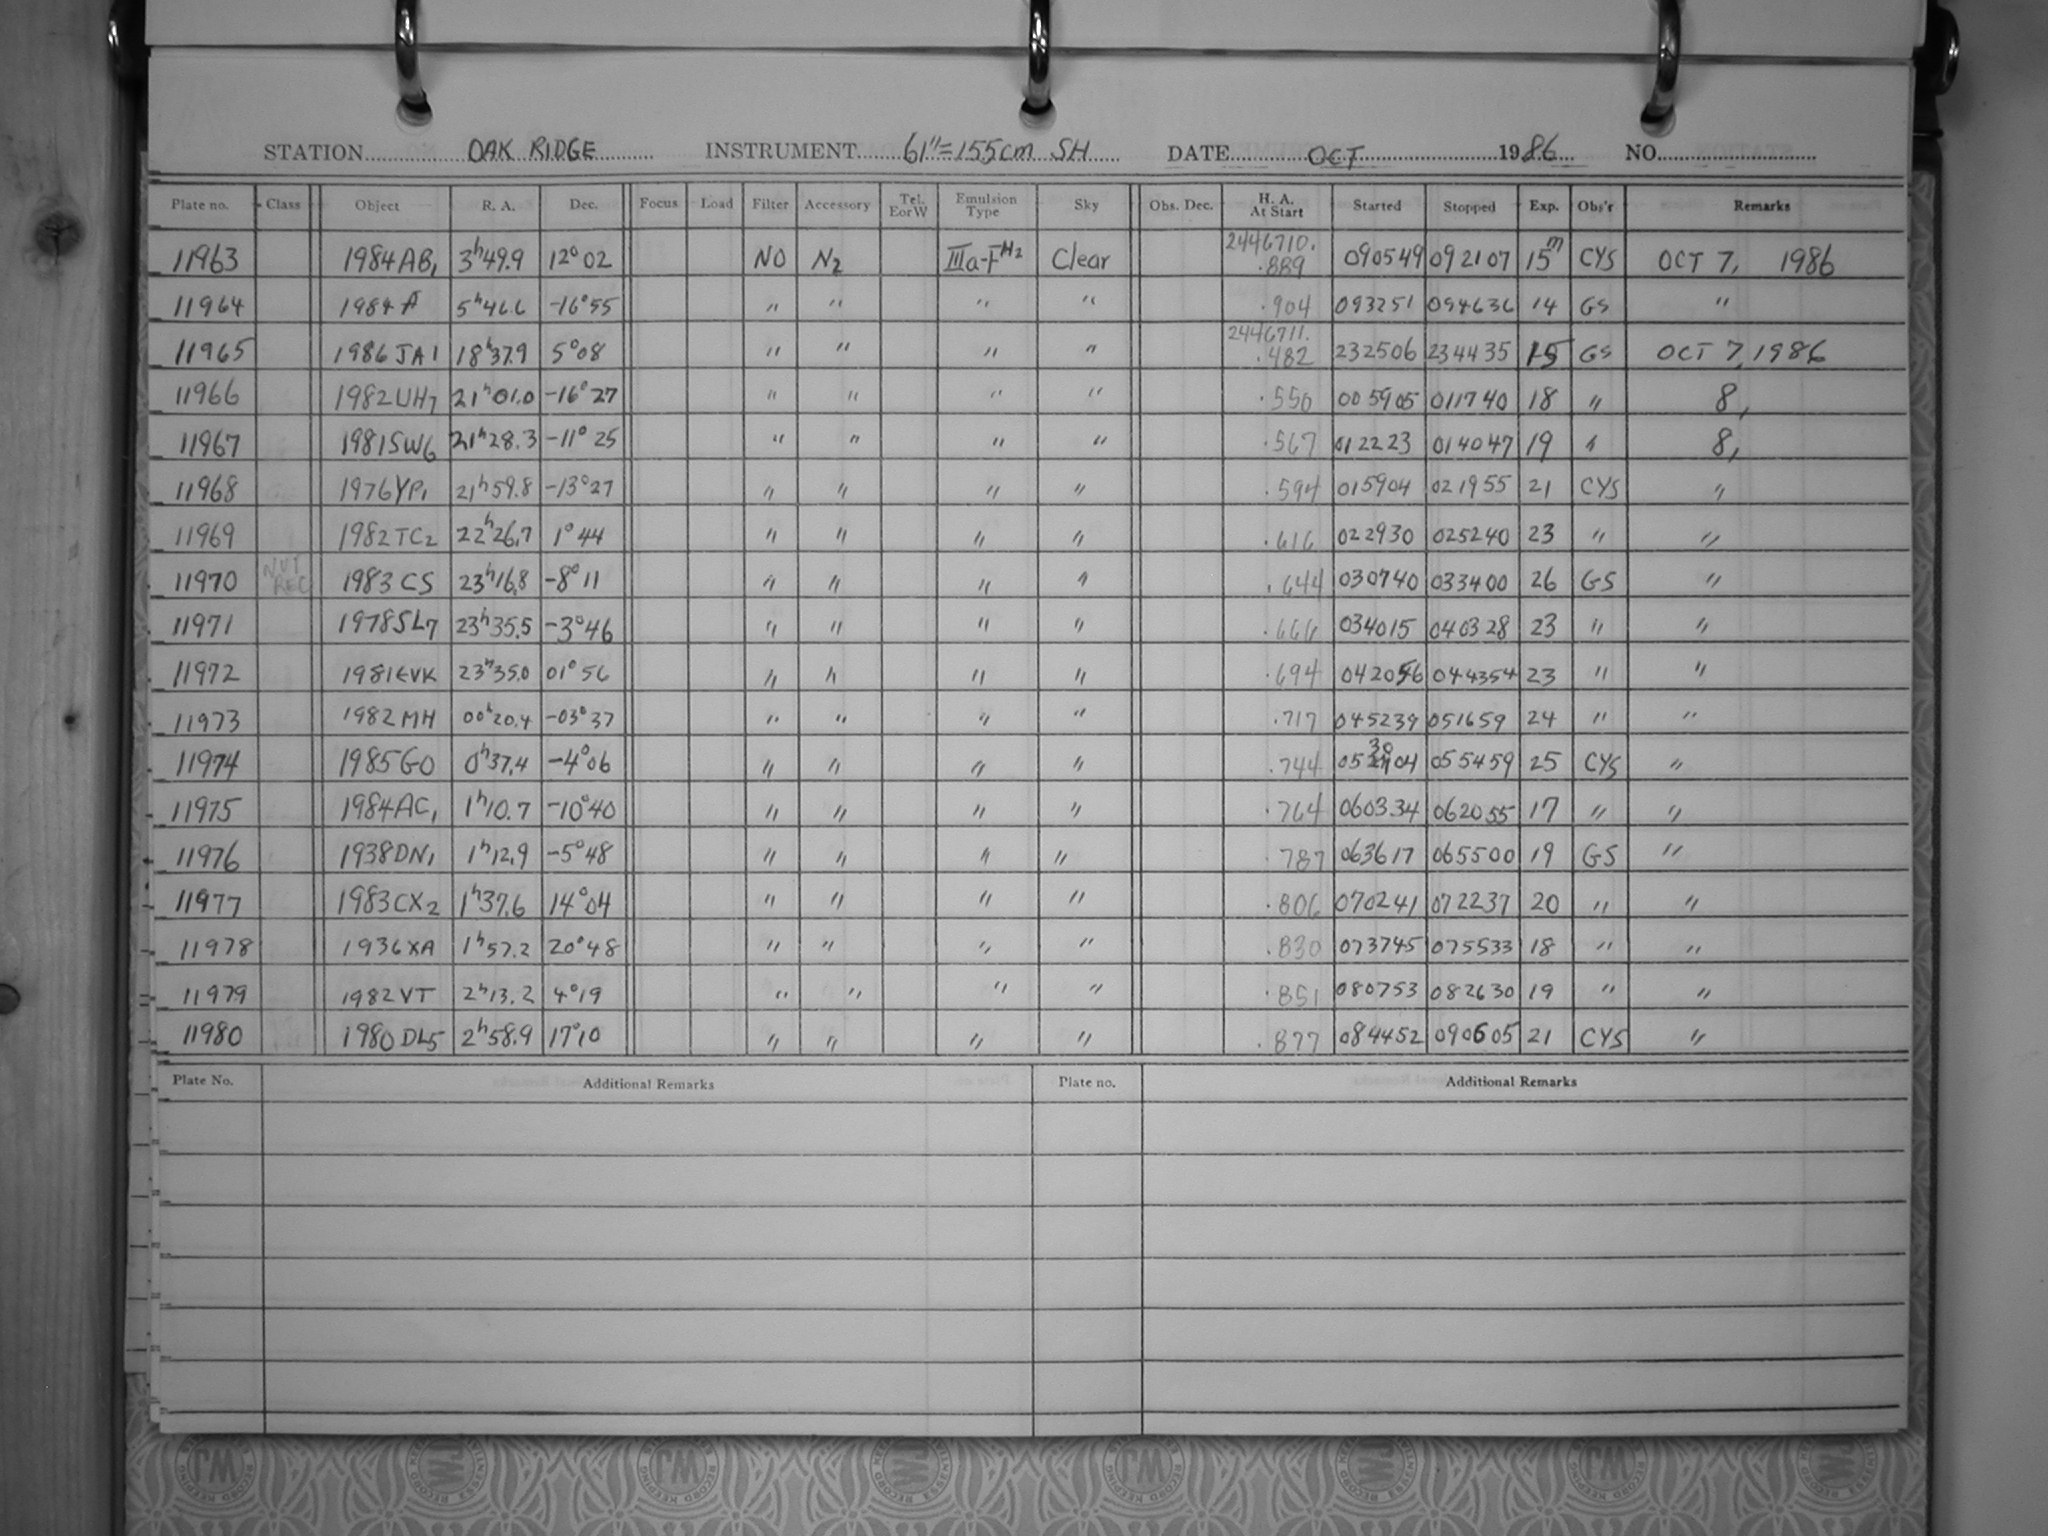 STATION OAK RIDGE INSTRUMENT 61"=155cm SH DATE OCT 1986 NO.
Plate no. Class Object R. A. Dec. Focus Load Filter Accessory Tel. EorW Emulsion Type Sky Obs. Dec. H. A. At Start Started Stopped Exp. Obs'r Remarks
11963 1984AB₁ 3ʰ49.9 12°02 NO N₂ IIIa-F H₂ Clear 2446710. .889 090549 092107 15ᵐ CYS OCT 7, 1986
11964 1984 A 5ʰ46.6 -16°55 " " " " .904 093251 094636 14 GS "
11965 1986 JA1 18ʰ37.9 5°08 " " " " 2446711. .482 232506 234435 15 GS OCT 7, 1986
11966 1982UH₇ 21ʰ01.0 -16°27 " " " " .550 005905 011740 18 " 8,
11967 1981SW₆ 21ʰ28.3 -11°25 " " " " .567 012223 014047 19 " 8,
11968 1976YP₁ 21ʰ59.8 -13°27 " " " " .594 015904 021955 21 CYS "
11969 1982TC₂ 22ʰ26.7 1°44 " " " " .616 022930 025240 23 " "
11970 REC 1983 CS 23ʰ16.8 -8°11 " " " " .644 030740 033400 26 GS "
11971 1978SL₇ 23ʰ35.5 -3°46 " " " " .666 034015 040328 23 " "
11972 1981EVK 23ʰ35.0 01°56 " " " " .694 042056 044354 23 " "
11973 1982 MH 00ʰ20.4 -03°37 " " " " .717 045239 051659 24 " "
11974 1985GO 0ʰ37.4 -4°06 " " " " .744 053004 055459 25 CYS "
11975 1984AC₁ 1ʰ10.7 -10°40 " " " " .764 060334 062055 17 " "
11976 1938DN₁ 1ʰ12.9 -5°48 " " " " .787 063617 065500 19 GS "
11977 1983CX₂ 1ʰ37.6 14°04 " " " " .806 070241 072237 20 " "
11978 1936XA 1ʰ57.2 20°48 " " " " .830 073745 075533 18 " "
11979 1982VT 2ʰ13.2 4°19 " " " " .851 080753 082630 19 " "
11980 1980 DL₅ 2ʰ58.9 17°10 " " " " .877 084452 090605 21 CYS "
Plate No. Additional Remarks Plate no. Additional Remarks